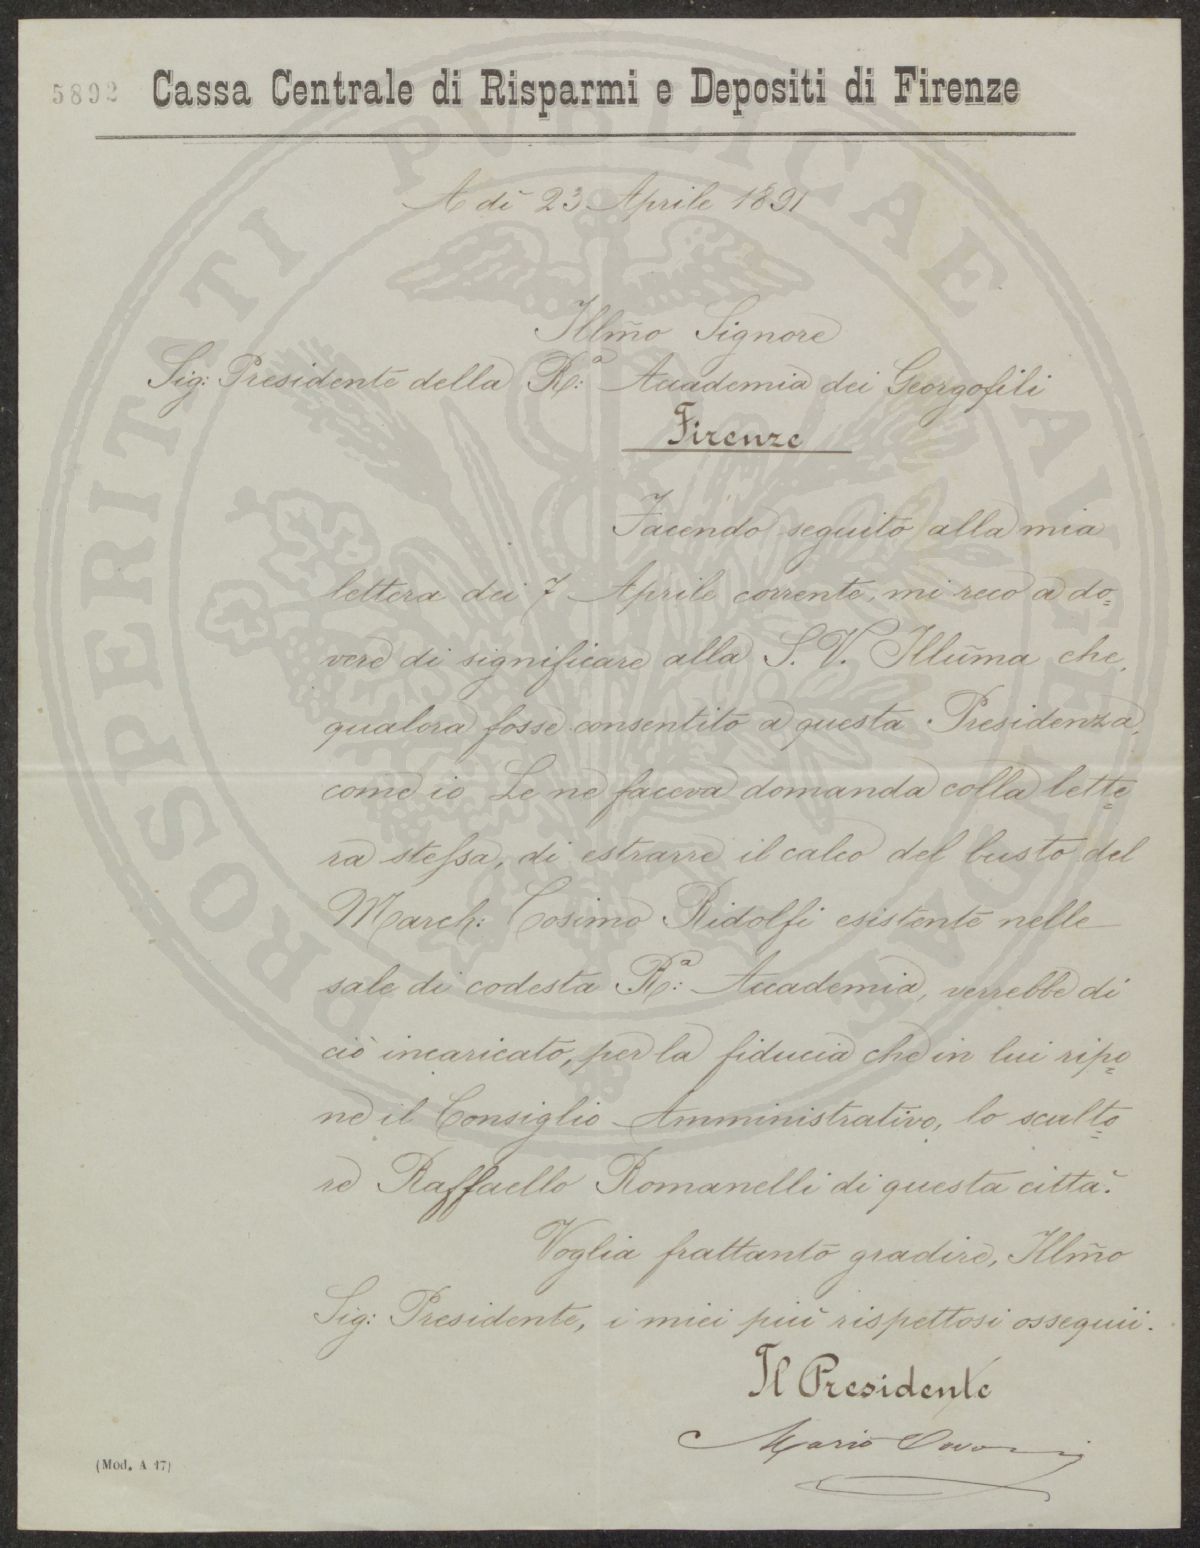 5892 Cassa Centrale di Risparmi e Depositi di Firenze
PROSPERITATI PVBLICAE AVGENDAE
A dì 23 Aprile 1891
Illm̃o Signore
Sig: Presidente della R:ª Accademia dei Georgofili
Firenze
Facendo seguito alla mia
lettera dei 7 Aprile corrente, mi reco a do=
vere di significare alla S. V. Illũma che,
qualora fosse consentito a questa Presidenza,
come io Le ne faceva domanda colla lette=
ra stessa, di estrarre il calco del busto del
March: Cosimo Ridolfi esistente nelle
sale di codesta R:ª Accademia, verrebbe di
ciò incaricato, per la fiducia che in lui ripo=
ne il Consiglio Amministrativo, lo sculto=
re Raffaello Romanelli di questa città.
Voglia frattanto gradire, Illm̃o
Sig: Presidente, i miei più rispettosi ossequii.
Il Presidente
Mario
(Mod. A 17)